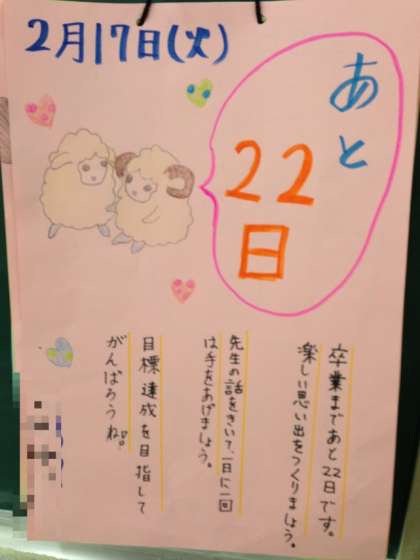 2月17日(火)
あと
22
日
卒業まであと22日です。
楽しい思い出をつくりましょう。
先生の話をきいて、一日に一回
は手をあげましょう。
目標達成を目指して
がんばろうね。